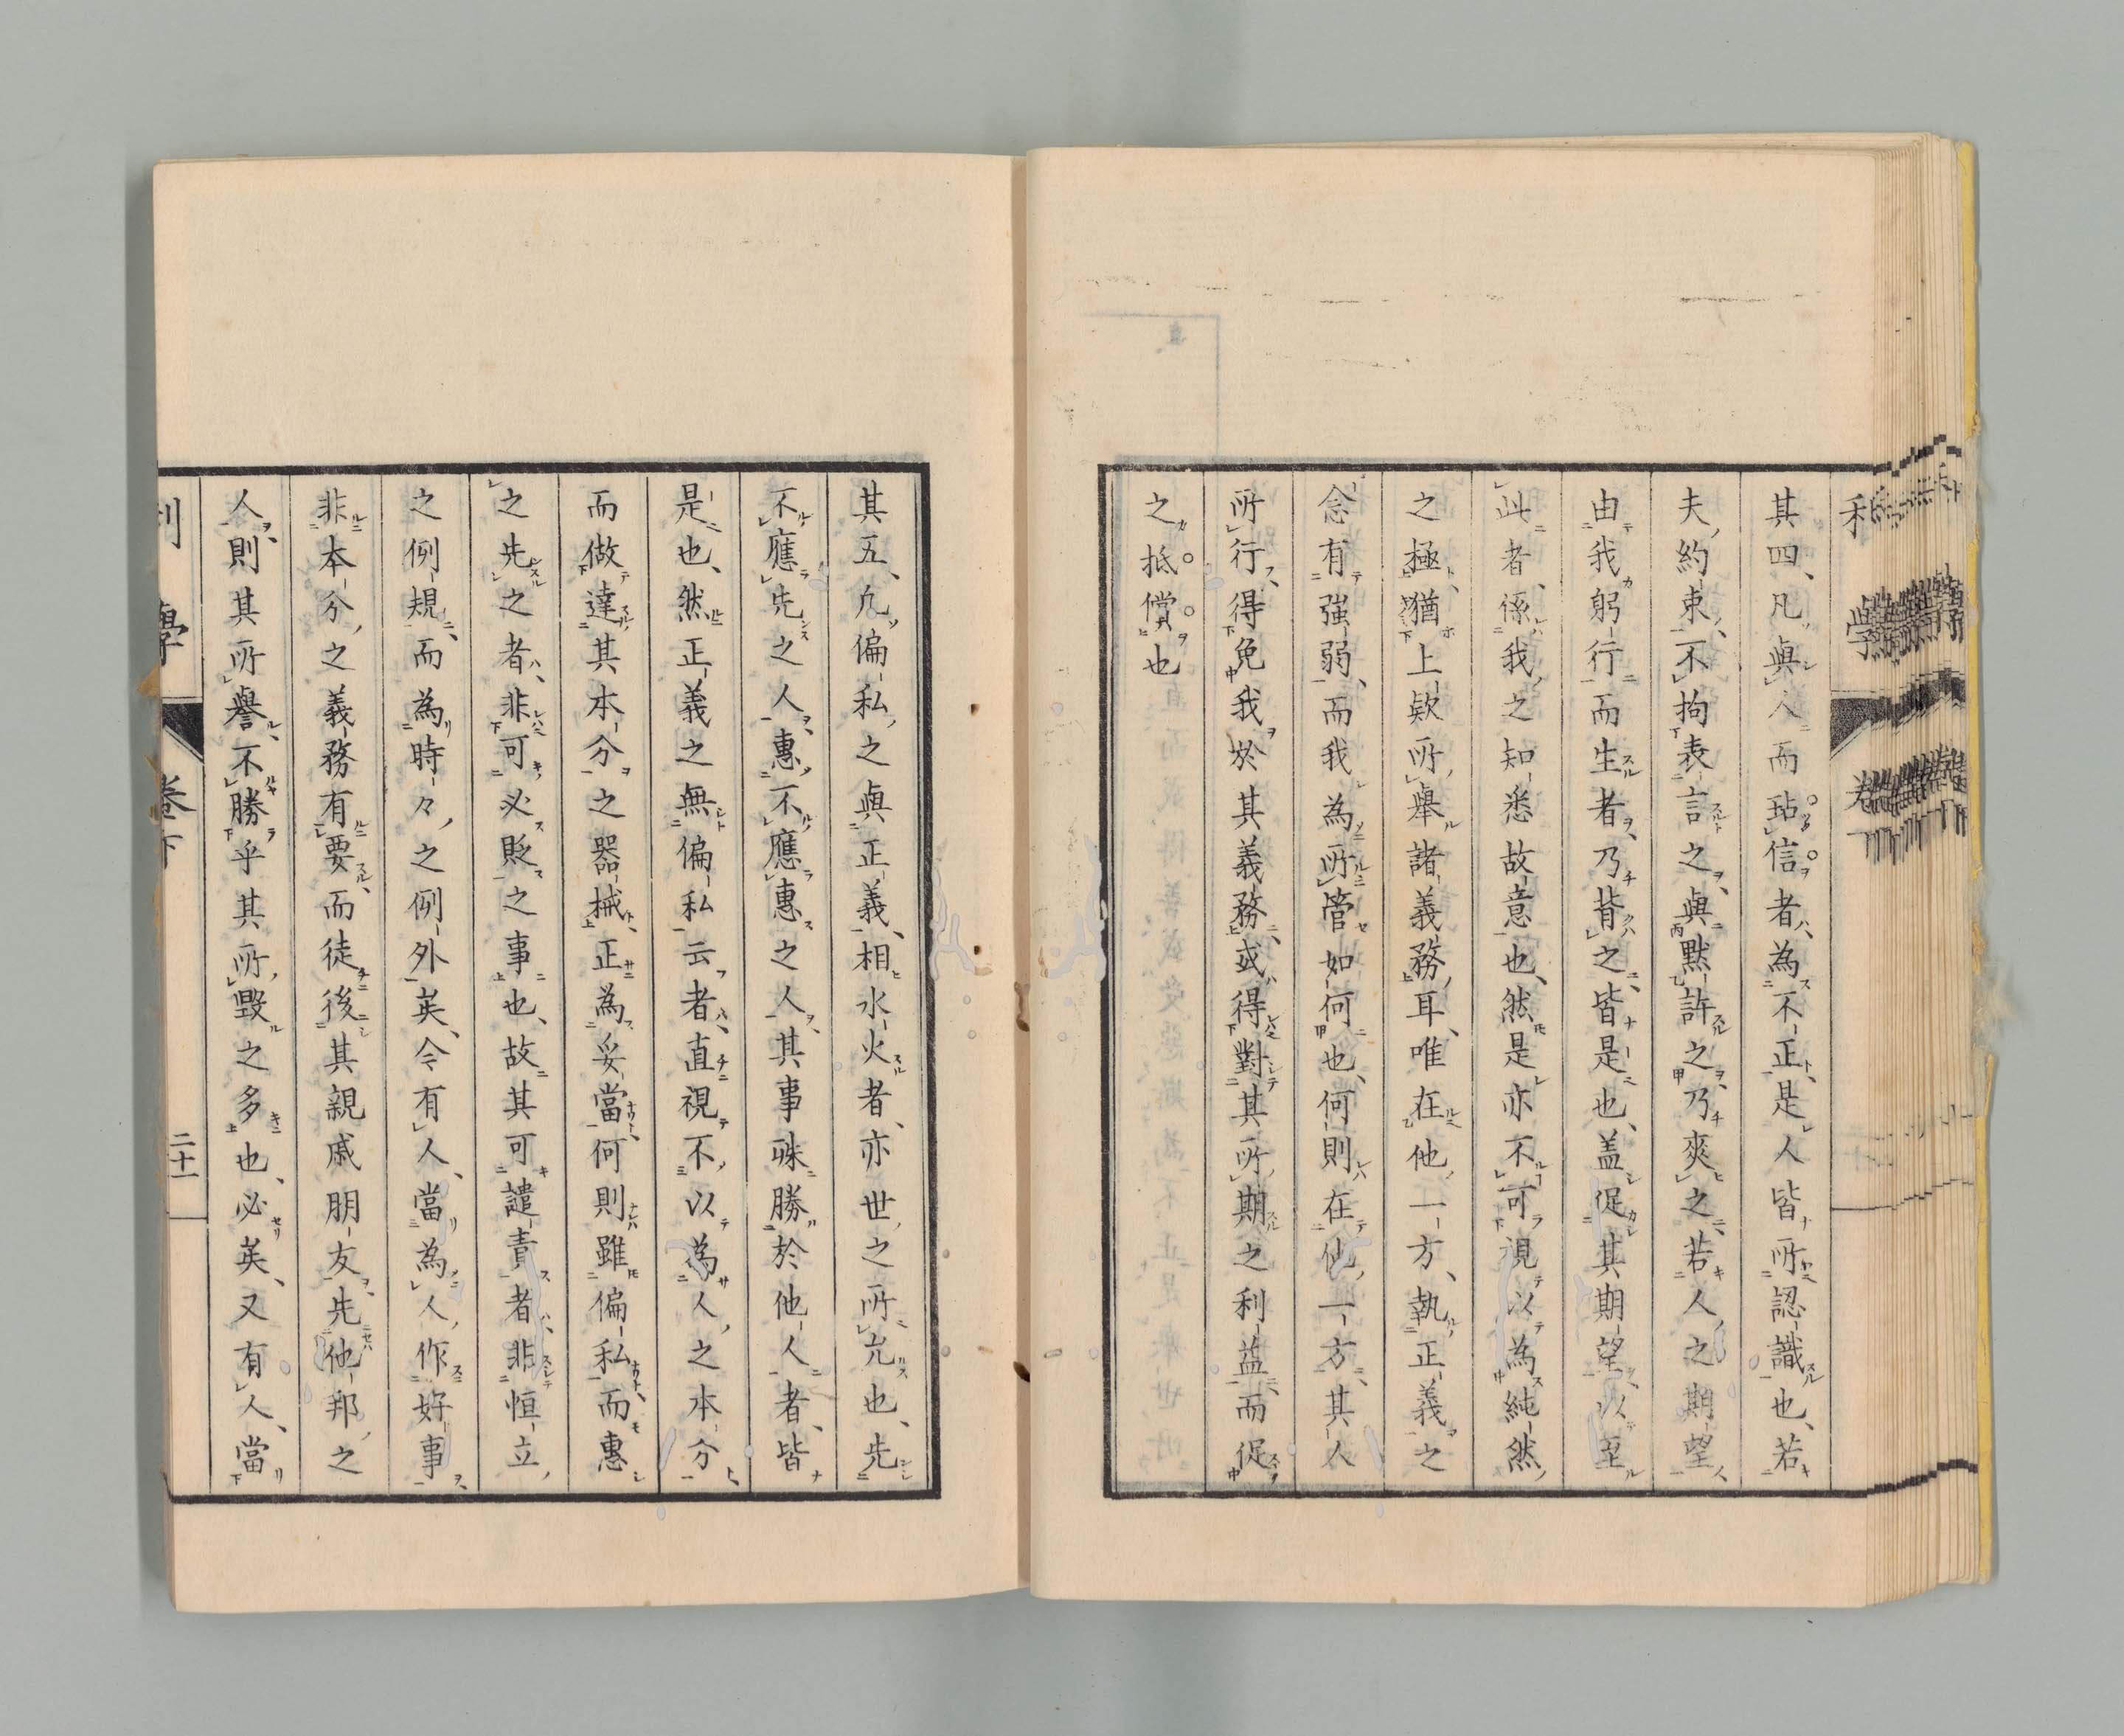 其四、凡與人而玷信者、為不正、是人皆所認識也、若
夫約束、不拘表言之、與默許之、乃爽之、若人之期望
由我躬行而生者、乃背之、皆是也、盖促其期望、以至
此者、係我之知悉故意也、然是亦不可視以為純然
之極、猶上欵所舉諸義務耳、唯在他一方、執正義之
念有強弱、而我為所管如何也、何則在他一方、其人
所行、得免我於其義務或得對其所期之利益、而促
之抵償也
其五、凢偏私之與正義、相水火者、亦世之所允也、先
不應先之人、惠不應惠之人、其事殊勝於他人者、皆
是也、然正義之無偏私云者、直視不以為人之本分、
而做達其本分之器械、正為妥當、何則雖偏私、而惠
之先之者、非可必貶之事也、故其可譴責者、非恒立
之例規、而為時々之例外矣、今有人、當為人作好事、
非本分之義務有要、而徒後其親戚朋友、先他邦之
人、則其所譽、不勝乎其所毀之多也、必矣、又有人、當
利學 卷下 二十一